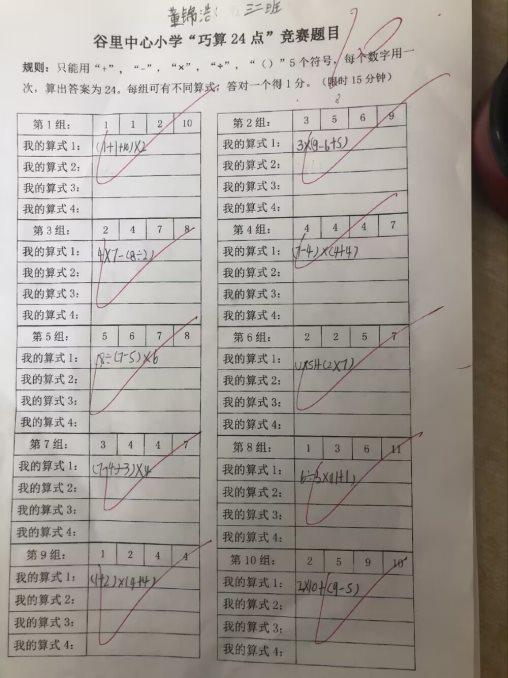 董锦浩 三二班
谷里中心小学“巧算24点”竞赛题目
规则：只能用“+”，“-”，“×”，“÷”，“（）”5个符号，每个数字用一
次，算出答案为24。每组可有不同算式，答对一个得1分。（限时15分钟）
第1组： 1 1 2 10
我的算式1： (1+1+10)×2
我的算式2：
我的算式3：
我的算式4：
第2组： 3 5 6 9
我的算式1： 3×(9-6+5)
我的算式2：
我的算式3：
我的算式4：
第3组： 2 4 7 8
我的算式1： 4×7-(8÷2)
我的算式2：
我的算式3：
我的算式4：
第4组： 4 4 4 7
我的算式1： (7-4)×(4+4)
我的算式2：
我的算式3：
我的算式4：
第5组： 5 6 7 8
我的算式1： 8÷(7-5)×6
我的算式2：
我的算式3：
我的算式4：
第6组： 2 2 5 7
我的算式1： (2×7)
我的算式2：
我的算式3：
我的算式4：
第7组： 3 4 4 7
我的算式1：
我的算式2：
我的算式3：
我的算式4：
第8组： 1 3 6 11
我的算式1： 6÷3×(11+1)
我的算式2：
我的算式3：
我的算式4：
第9组： 1 2 4 4
我的算式1： (1+2)×(4+4)
我的算式2：
我的算式3：
我的算式4：
第10组： 2 5 9 10
我的算式1： 2×10+(9-5)
我的算式2：
我的算式3：
我的算式4：